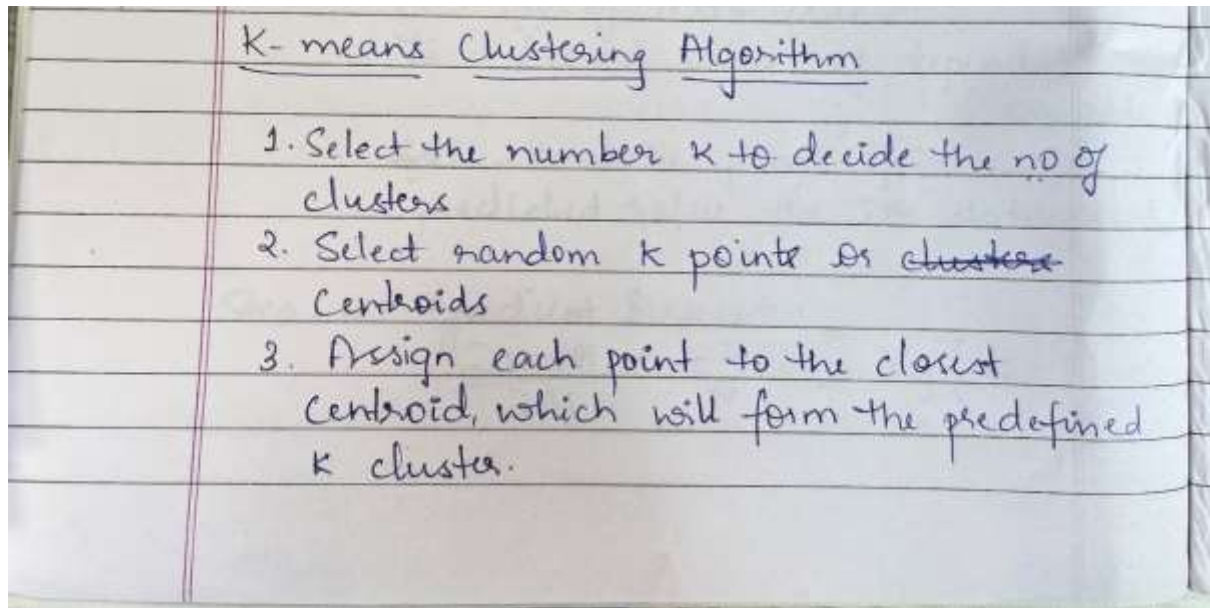 K- means Clustering Algorithm
1. Select the number K to decide the no of
clusters
2. Select random K points or clusters
Centroids
3. Assign each point to the closest
Centroid, which will form the predefined
K cluster.